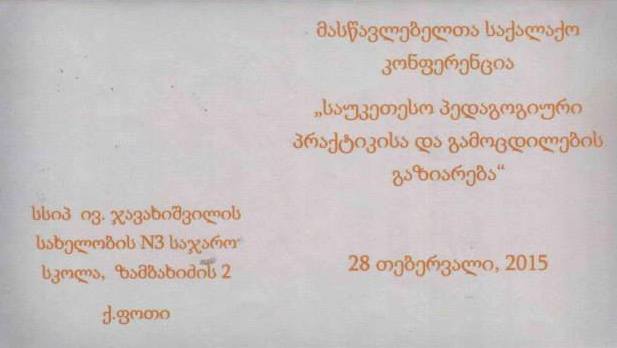 მასწავლებელთა საქალაქო
კონფერენცია
„საუკეთესო პედაგოგიური
პრაქტიკისა და გამოცდილების
გაზიარება“
სსიპ ივ. ჯავახიშვილის
სახელობის N3 საჯარო
სკოლა, ზამბახიძის 2
ქ.ფოთი
28 თებერვალი, 2015